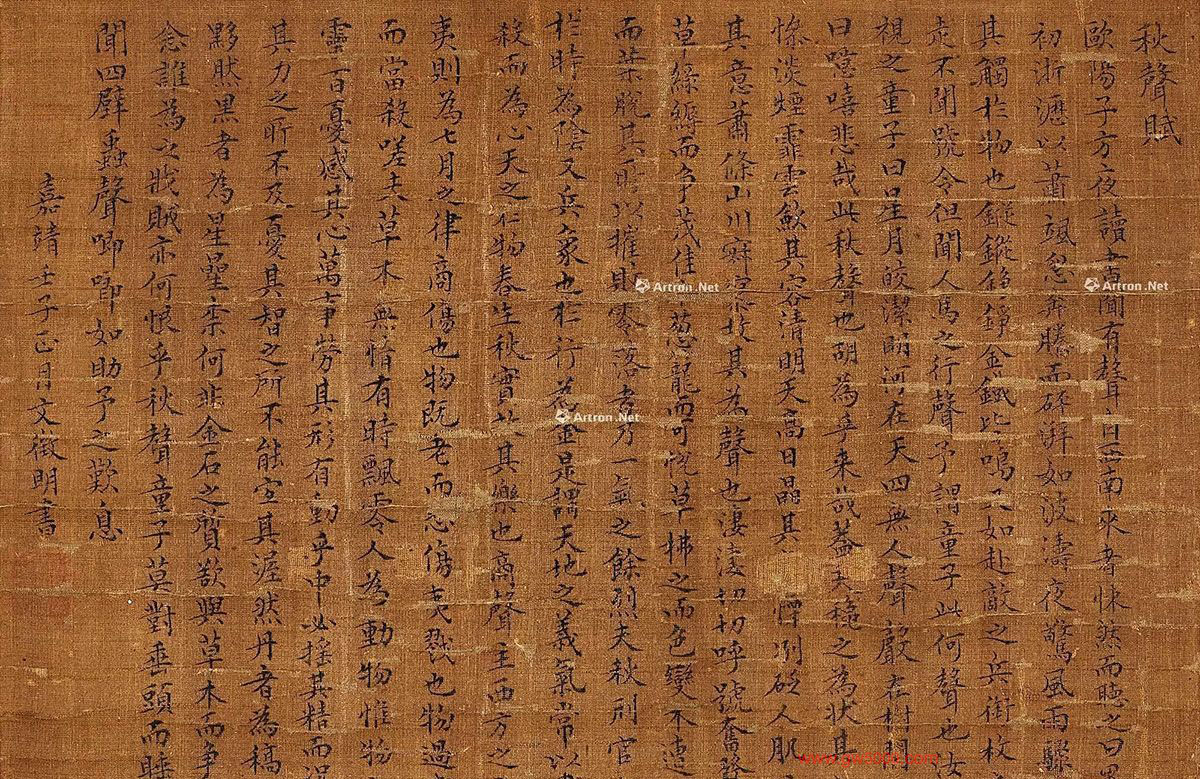 秋聲賦
歐陽子方夜讀書聞有聲自西南來者悚然而聽之曰
初淅瀝以蕭颯忽奔騰而砰湃如波濤夜驚風雨驟
其觸於物也鏦鏦錚錚金鐵皆鳴又如赴敵之兵銜枚
走不聞號令但聞人馬之行聲予謂童子此何聲也汝
視之童子曰星月皎潔明河在天四無人聲聲在樹間
曰噫嘻悲哉此秋聲也胡為乎來哉蓋夫秋之為狀其
慘淡煙霏雲斂其容清明天高日晶其慄冽砭人肌
其意蕭條山川寂寥故其為聲也淒淒切切呼號奮發
草綠縟而爭茂佳蔥蘢而可悅草拂之而色變木遭
而葉脫其所以摧敗零落者乃一氣之餘烈夫秋刑官
於時為陰又兵象也於行為金是謂天地之義氣常以
殺而為心天之於物春生秋實故其樂也商聲主西方之
夷則為七月之律商傷也物既老而悲傷夷戮也物過
而當殺嗟夫草木無情有時飄零人為動物惟物
靈百憂感其心萬事勞其形有動乎中必搖其精而況
其力之所不及憂其智之所不能宜其渥然丹者為槁
黟然黑者為星星奈何非金石之質欲與草木而爭
念誰為之戕賊亦何恨乎秋聲童子莫對垂頭而睡
聞四壁蟲聲唧唧如助予之歎息
嘉靖壬子正月文徵明書
Artron.Net
Artron.Net
Artron.Net